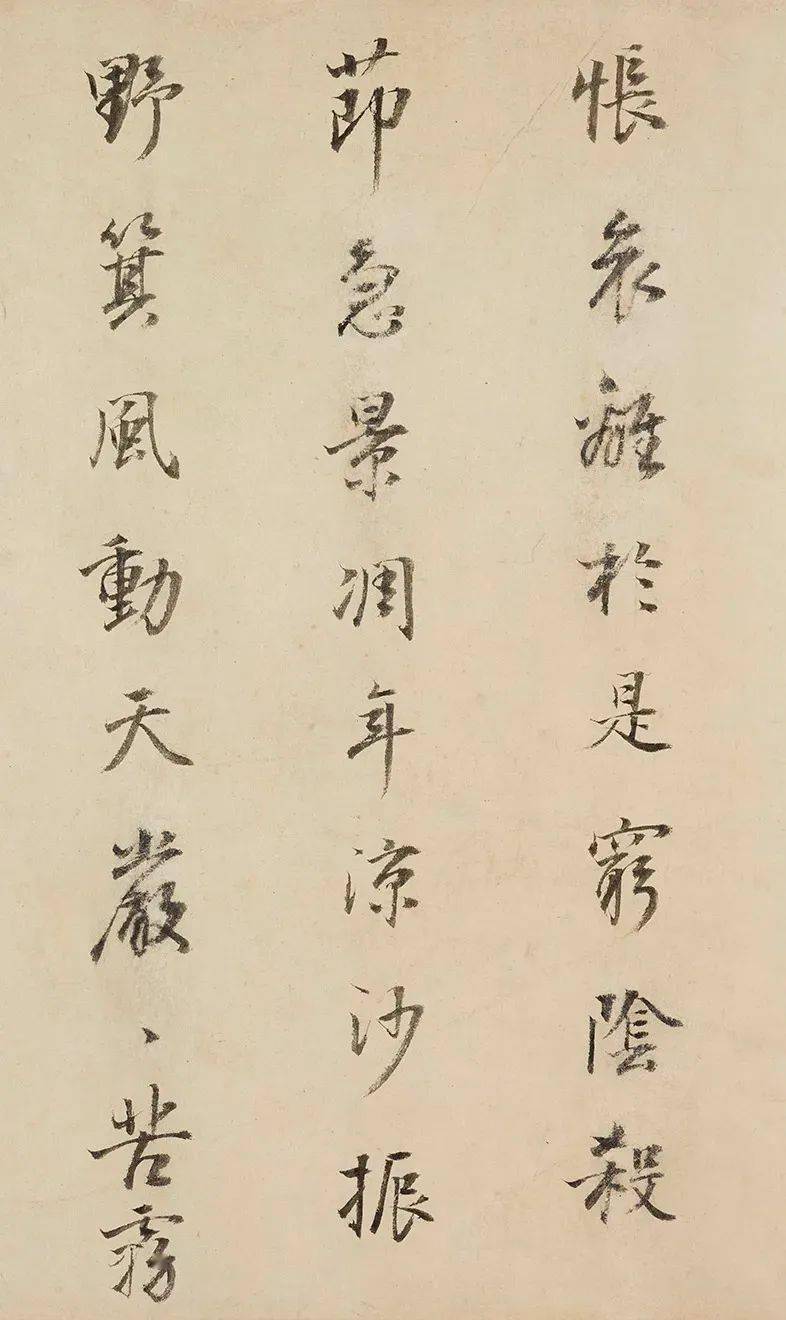 悵哀離於是窮陰殺
節急景凋年涼沙振
野箕風動天嚴、苦霧